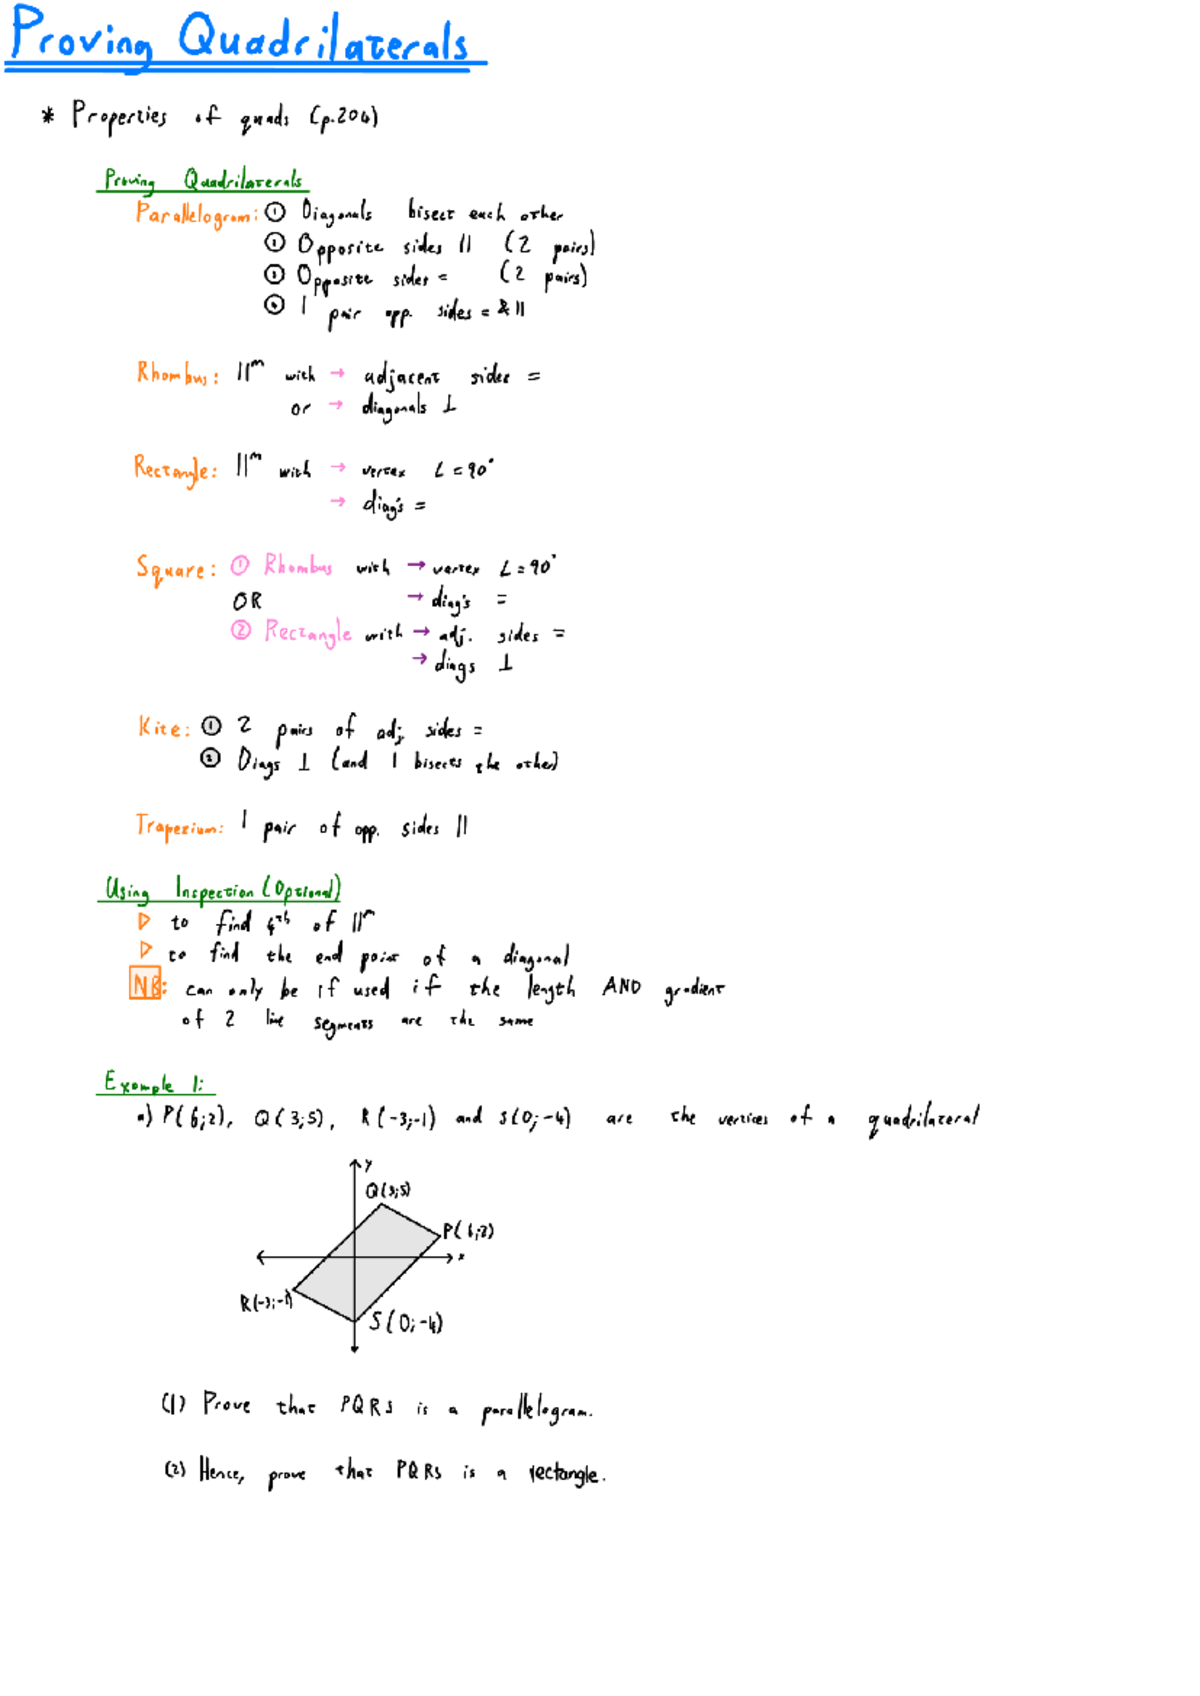 Proving Quadrilaterals
* Properties of quads (p.204)
Proving Quadrilaterals
Parallelogram: ① Diagonals bisect each other
② Opposite sides || (2 pairs)
③ Opposite sides = (2 pairs)
④ 1 pair opp. sides = & ||
Rhombus: ||ᵐ with → adjacent sides =
or → diagonals ⊥
Rectangle: ||ᵐ with → vertex ∠ = 90°
→ diag's =
Square: ① Rhombus with → vertex ∠ = 90°
OR → diag's =
② Rectangle with → adj. sides =
→ diags ⊥
Kite: ① 2 pairs of adj sides =
② Diags ⊥ (and 1 bisects the other)
Trapezium: 1 pair of opp. sides ||
Using Inspection (Optional)
▷ to find 4ᵗʰ of ||ᵐ
▷ to find the end point of a diagonal
NB: can only be if used if the length AND gradient
of 2 line segments are the same
Example 1:
a) P(6;2), Q(3;5), R(-3;-1) and S(0;-4) are the vertices of a quadrilateral
y
Q(3;5)
P(6;2)
x
R(-3;-1)
S(0;-4)
(1) Prove that PQRS is a parallelogram.
(2) Hence, prove that PQRS is a rectangle.